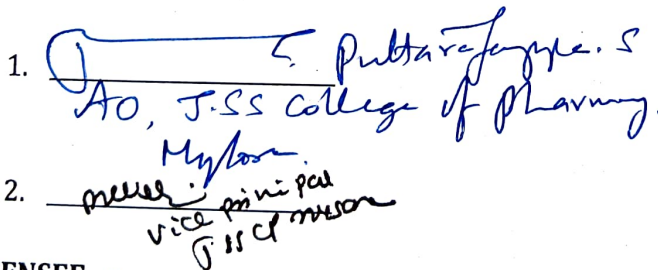 1. Puttarajappa. S
AO, J.SS College of pharmacy
Mysore.
2.
vice principal
JSSCP mysore
ENSEE